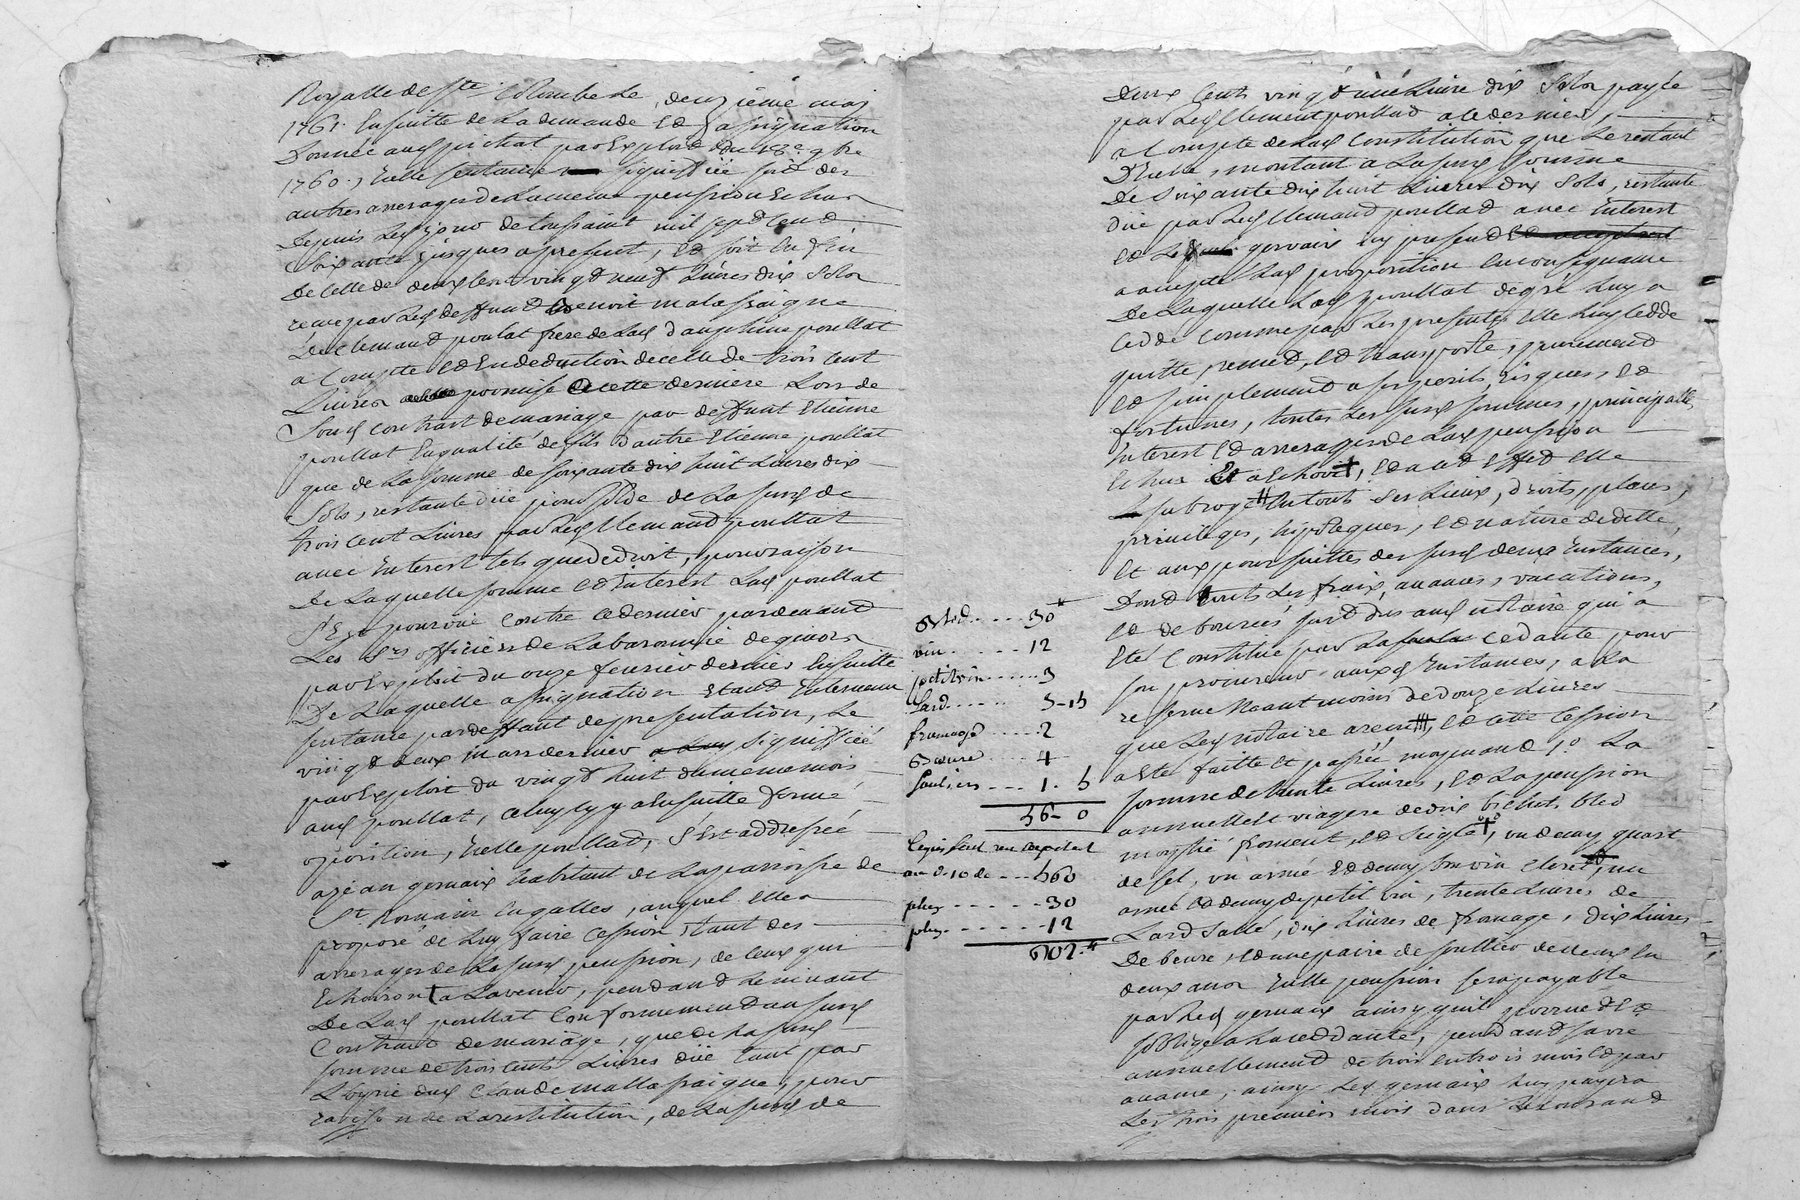 Royalle de Ste Colombe le deuzième may
1761. Ensuitte de la demande Et assignation
Donnée aud pichat par Exploit du 18e 9bre
1760., Icelle sentance signiffiée soit des
autres arrerages de la meme pension Echus
Depuis led jour de toussaint mil sept Cent
Soixante jusques a present, Et soit En fin
De Celle de deux Cent vingt neuf livres dix Sols
receue par led deffunt Benoit malassaigne
De Clemand poulat frere de lad dauphine poullat
a Compte Et En deduction de celle de trois Cent
Livres promise a cette derniere Lors de
Sond contrat de mariage par deffunt Etienne
poullat En qualité de fils d'autre Etienne poullat
que de la somme de soixante dix huit Livres dix
Sols, restante düe pour solde de la susd de
trois Cent Livres par led Clemand poullat
avec Interest tels que de droit, pour raison
De laquelle somme Et Interest Lad poullat
S'Est pourvüe Contre ce dernier pardevant
Les Srs officiers de La baronnie de givors
par Exploit du onze fevrier dernier Ensuitte
De Laquelle assignation Etant Intervenu
sentance par deffaut de presentation, le
vingt deux mars dernier signiffiée
par Exploit du vingt huit du meme mois
aud poullat, Celuy cy y a Ensuitte formé
oposition, Icelle poullat, s'Est addressée
a jean gervais habitant de La parroisse de
St Romain En galles, auquel Elle a
proposé de Luy faire Cession tant des
arrerages de La susd pension, de Ceux qui
Echoiront a L'avenir, pendant Le vivant
De Lad poullat Conformement au susd
Contrat de mariage, que de La susd
somme de trois cents Livres düe tant par
L'hoirie dud Claude mallassaigne, pour
raison de La restitution, de La susd de
Deux Cents vingt neuf Livre dix Sols payée
par led Clement poullat a ce dernier,
a Compte de lad Constitution que le restant
D'Icelle, montant a La susd somme
De soixante dix huit Livres dix Sols, restante
düe par led Clemand poullat avec Interest
Et Led gervais icy present
accepte Lad proposition En consequance
De Laquelle Lad poullat de gré Luy a
Cedde comme par Les presentes Elle Luy Cedde
quitte, remet, Et transporte, purement
Et simplement a ses perils, risques, Et
fortunes, toutes Les susd sommes, principalle,
Interest Et arrerages de Lad pension
Echus Et a Echoir, Et a cet Effet Elle
subroge En touts ses Lieux, Droits, places,
privileges, hipoteques, Et nature de dette,
Et aux poursuittes des susd deux Instances,
Dont touts Les fraix, avances, vacations,
Et deboursés sont dus aud notaire qui a
Eté Constitué par La Cedante pour
son procureur auxd Instances, a La
reserve Neant moins de douze Livres
que Led notaire a receu, Et cette Cession
a Eté faitte Et passée moyenant 1o La
somme de trente Livres, Et La pension
annuelle Et viagere de dix bichets bled
moytié froment, Et Seigle, un demy quart
de sel, un asnée Et demy bon vin Clairet, une
asnée Et demy de petit vin, trente Livres de
Lard Sallé, dix Livres de fromage, dix Livres
De beure, Et une paire de soulliers de deux En
deux ans Icelle pension sera payable
par Led gervais ainsy qu'il promet Et
s'oblige a La ceddante, pendant sa vie
annuellement de trois En trois mois Et par
avance, ainsy Led gervais Luy payera
Les trois premiers mois dans Le courant
Bled . . . . . 30 ₶
vin . . . . . . 12
petit vin . . . . . 3
Lard . . . . . 3-15
fromage . . . . 2
Beurre . . . . 4
souliers . . . 1. 5
56 - 0
Lequis fait un capital
au d. 10 de . . . 560
plus . . . . . . 30
plus . . . . . . 12
602 ₶